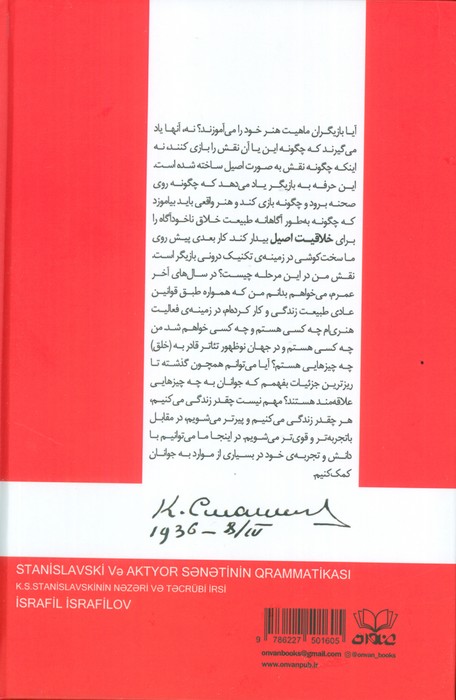 آیا بازیگران ماهیت هنر خود را می‌آموزند؟ نه، آنها یاد
می‌گیرند که چگونه این یا آن نقش را بازی کنند، نه
اینکه چگونه نقش به صورت اصیل ساخته شده است.
این حرفه به بازیگر یاد می‌دهد که چگونه روی
صحنه برود و چگونه بازی کند و هنر واقعی باید بیاموزد
که چگونه به‌طور آگاهانه طبیعت خلاق ناخودآگاه را
برای خلاقیت اصیل بیدار کند. کار بعدی پیش روی
ما سخت‌کوشی در زمینه‌ی تکنیک درونی بازیگر است.
نقش من در این مرحله چیست؟ در سال‌های آخر
عمرم، می‌خواهم بدانم من که همواره طبق قوانین
عادی طبیعت زندگی و کار کرده‌ام، در زمینه‌ی فعالیت
هنری‌ام چه کسی هستم و چه کسی خواهم شد. من
چه کسی هستم و در جهان نوظهور تئاتر قادر به (خلق)
چه چیزهایی هستم؟ آیا می‌توانم همچون گذشته تا
ریزترین جزئیات بفهمم که جوانان به چه چیزهایی
علاقه‌مند هستند؟ مهم نیست چقدر زندگی می‌کنیم،
هر چقدر زندگی می‌کنیم و پیرتر می‌شویم، در مقابل
باتجربه‌تر و قوی‌تر می‌شویم. در اینجا ما می‌توانیم با
دانش و تجربه‌ی خود در بسیاری از موارد به جوانان
کمک کنیم.
1936 - 8/IV
STANİSLAVSKİ Və AKTYOR SƏNƏTİNİN QRAMMATİKASI
K.S.STANİSLAVSKİNİN NƏZƏRİ VƏ TƏCRÜBİ İRSİ
İSRAFİL İSRAFİLOV
9 786227 501605
onvanbooks@gmail.com @onvan_books
www.onvanpub.ir
عنوان